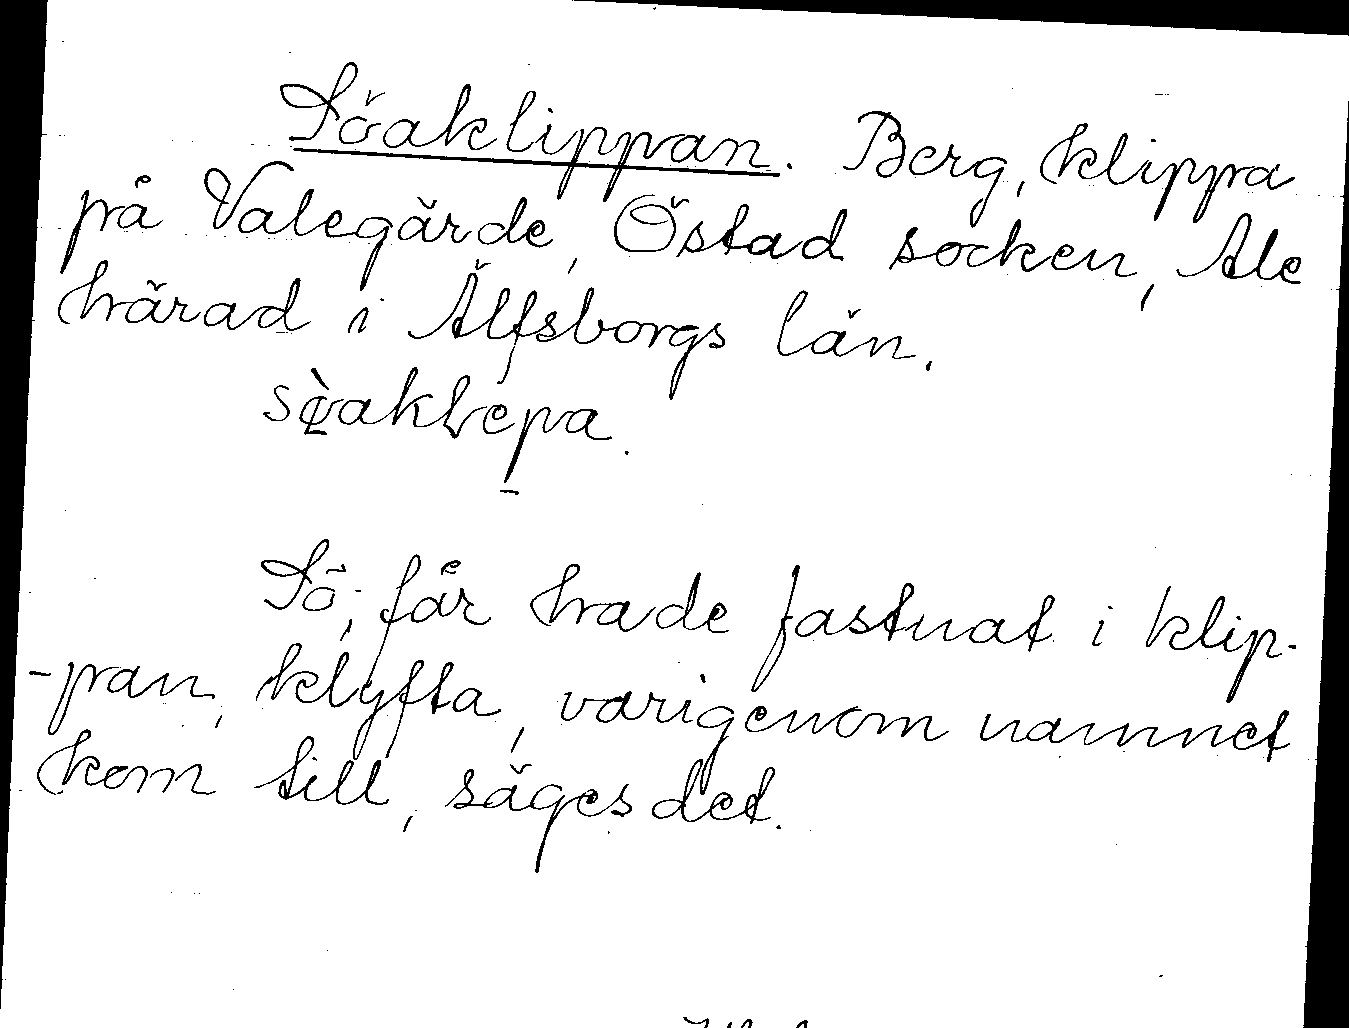 Söaklippan. Berg, klippa
på Valegärde, Östad socken, Ale
härad i Älfsborgs län.
Sö, får hade fastnat i klip-
-pan, klyfta, varigenom namnet
kom till, säges det.